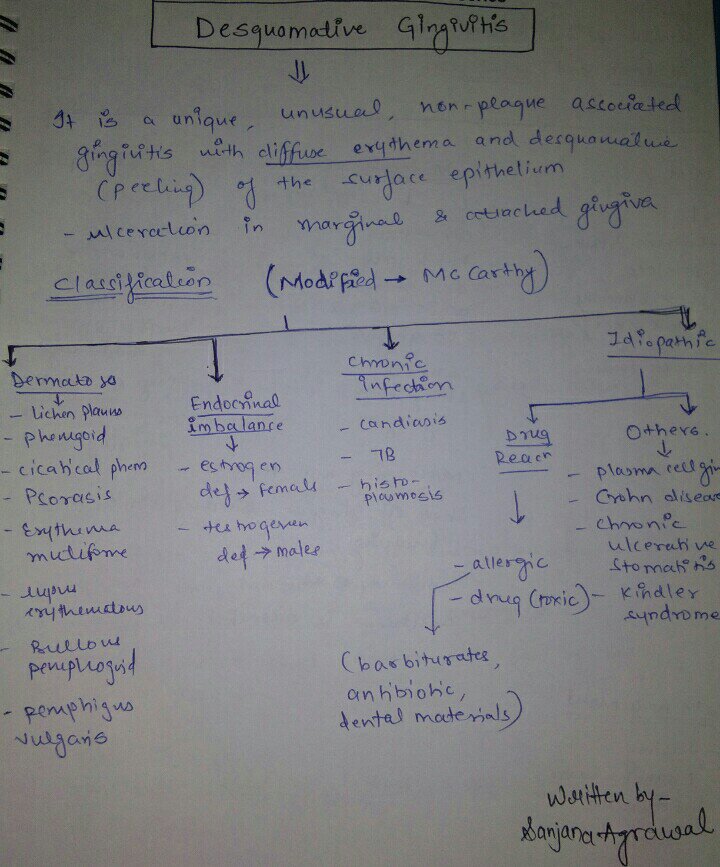 Desquamative Gingivitis
⇓
It is a unique, unusual, non-plaque associated
gingivitis with diffuse erythema and desquamative
(peeling) of the surface epithelium
- ulceration in marginal & attached gingiva
Classification (Modified → Mc Carthy)
Dermatoso
- Lichen planus
- phemgoid
- cicatical phem
- Psorasis
- Erythema
mutiforme
- lupus
erythematous
- Bullous
pemphogoid
- pemphigus
vulgaris
Endocrinal
imbalance
- estrogen
def → female
- testrogeren
def → males
Chronic
infection
- candiasis
- TB
- histo-
plasmosis
Idiopathic
Drug
Reacn
- allergic
- drug (toxic)
(barbiturates,
antibiotic,
dental materials)
Others.
- plasma cell gin
- Crohn disease
- chronic
ulcerative
stomatitis
- Kindler
syndrome
Written by-
Sanjana Agrawal